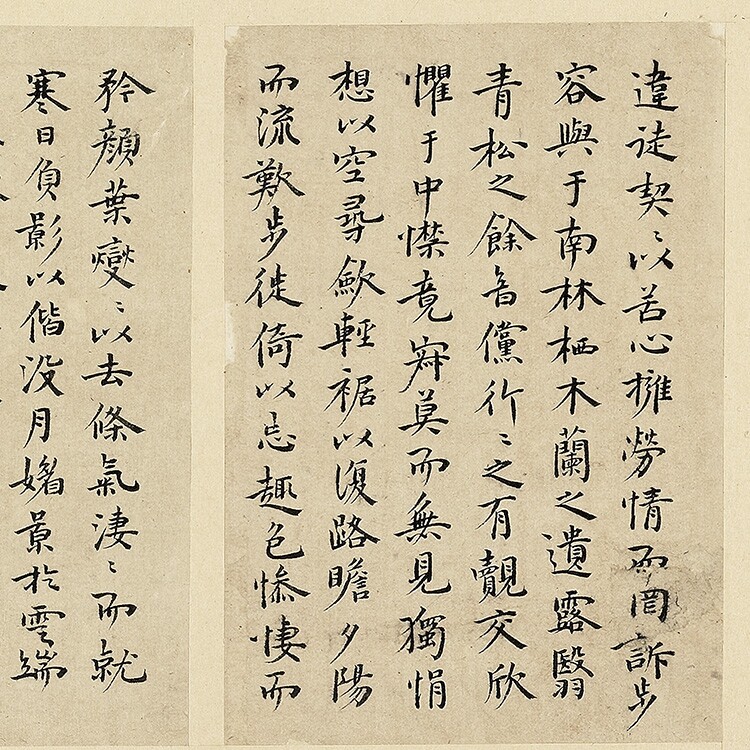 違徒契〻以苦心擁勞情而罔訴步
容與于南林栖木蘭之遺露翳
青松之餘音儻行〻之有覿交欣
懼于中襟竟寂莫而無見獨悁
想以空尋歛輕裾以復路瞻夕陽
而流歎步徙倚以忘趣色慘悽而
矜顏葉燮〻以去條氣淒〻而就
寒日負影以偕沒月媚景於雲端